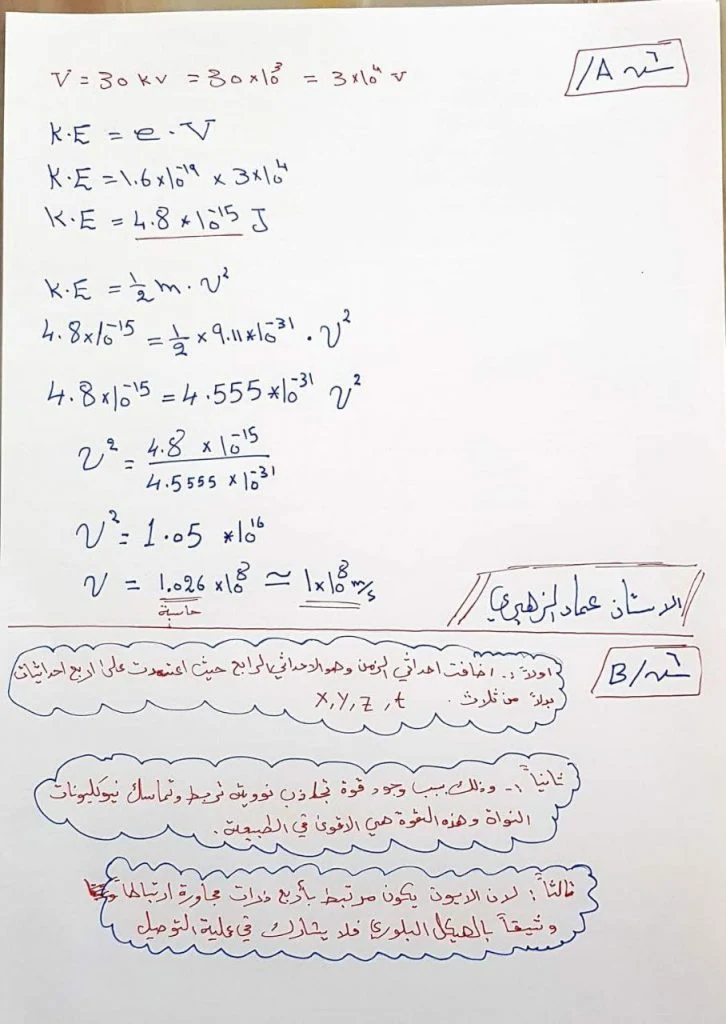 س٦ /A
V = 30 kv = 30×10³ = 3×10⁴ v
K.E = e . V
K.E = 1.6×10⁻¹⁹ × 3×10⁴
K.E = 4.8 × 10⁻¹⁵ J
K.E = ½ m . v²
4.8×10⁻¹⁵ = ½ × 9.11×10⁻³¹ . v²
4.8×10⁻¹⁵ = 4.555×10⁻³¹ v²
v² = 4.8 × 10⁻¹⁵ / 4.5555 × 10⁻³¹
v² = 1.05 × 10¹⁶
v = 1.026 × 10⁸ ≃ 1×10⁸ m/s
حاسبة
الاستاذ عماد الزهيري
س٦ /B
اولاً :. اضافت احداثي الزمن وهو الاحداثي الرابع حيث اعتمدت على اربع احداثيات
بدلاً من ثلاث . x, y, z, t
ثانياً :- وذلك بسبب وجود قوة تجاذب نووية تربط وتماسك نيوكليونات
النواة وهذه القوة هي الاقوى في الطبيعة .
ثالثاً : لان الايون يكون مرتبط بأربع ذرات مجاورة ارتباطاً
وثيقاً بالهيكل البلوري فلا يشارك في عملية التوصيل